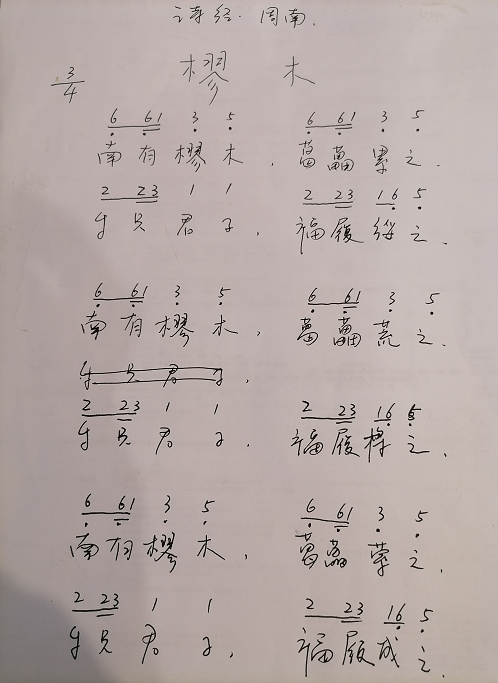 诗经·周南.
樛木
3/4
6 61 3 5 6 61 3 5
南有樛木，葛藟累之.
2 23 1 1 2 23 16 5
乐只君子，福履绥之.
6 61 3 5 6 61 3 5
南有樛木，葛藟荒之.
乐只君子，
2 23 1 1 2 23 16 5
乐只君子，福履将之.
6 61 3 5 6 61 3 5
南有樛木，葛藟萦之.
2 23 1 1 2 23 16 5
乐只君子，福履成之.